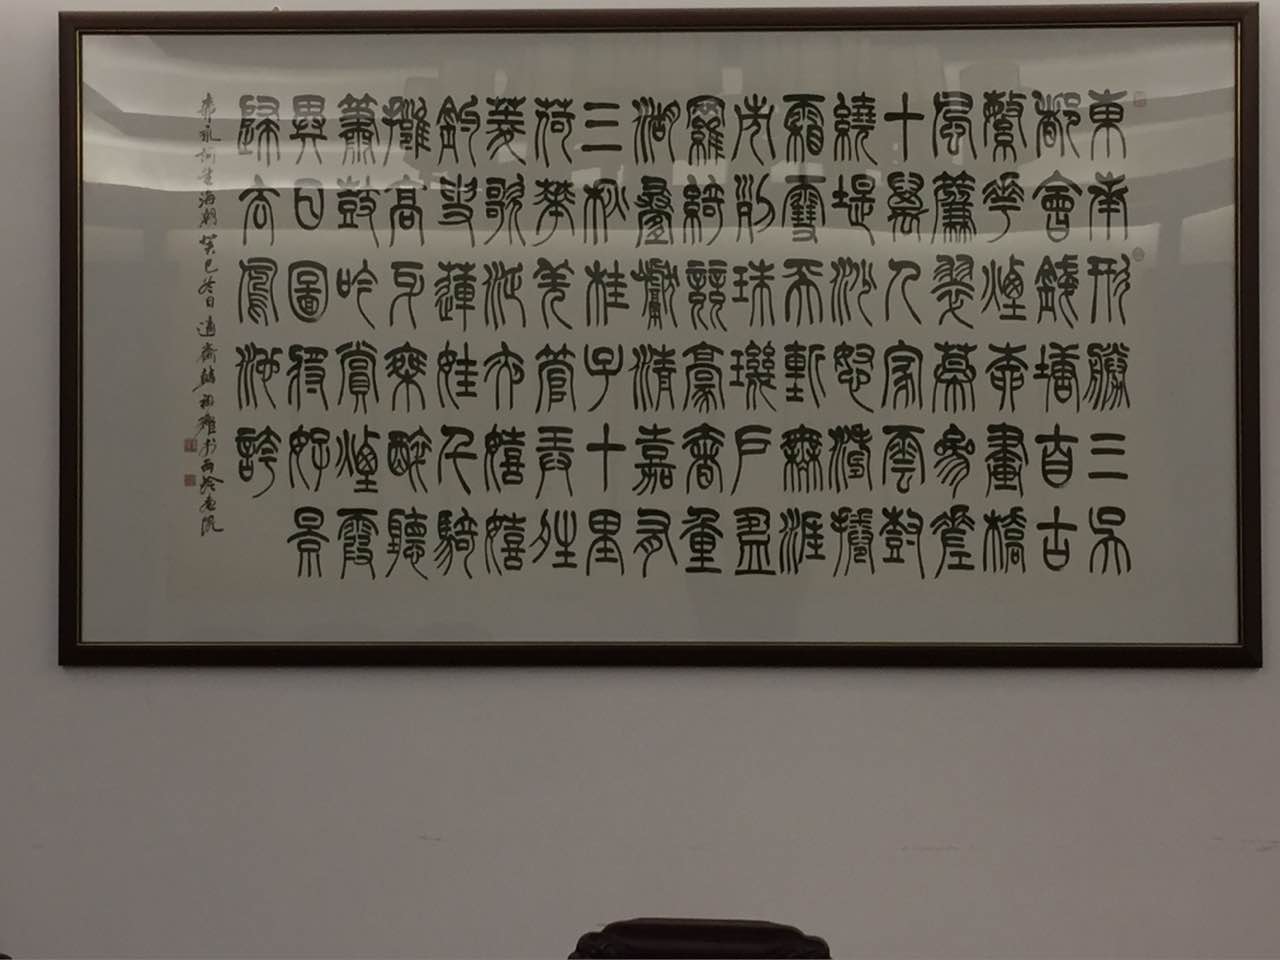 東南形勝三吳
都會錢塘自古
繁華煙柳畫橋
風簾翠幕參差
十萬人家雲樹
繞堤沙怒濤捲
霜雪天塹無涯
市列珠璣戶盈
羅綺競豪奢重
湖疊巘清嘉有
三秋桂子十里
荷華羌管弄晴
菱歌泛夜嬉嬉
釣叟蓮娃千騎
擁高牙乘醉聽
簫鼓吟賞煙霞
異日圖將好景
歸去鳳池誇
柳永詞望海潮癸巳冬日